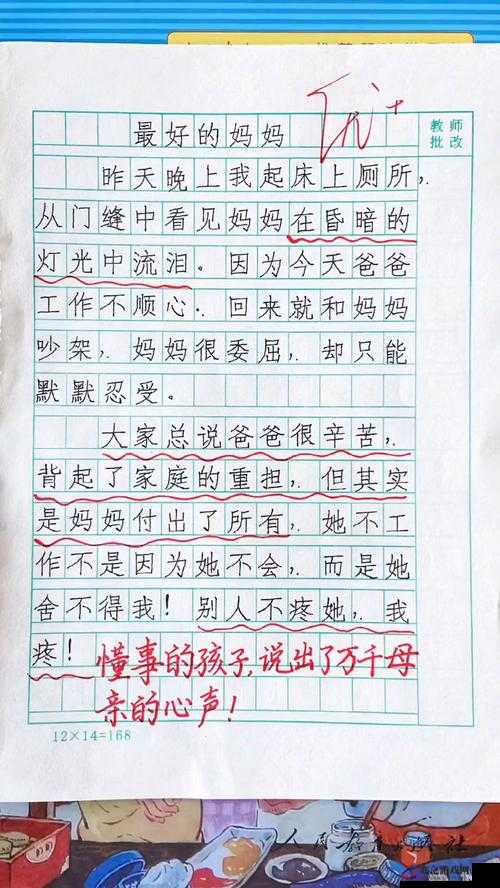 优+
教师
批改
最好的妈妈
昨天晚上我起床上厕所,
从门缝中看见妈妈在昏暗的
灯光中流泪。因为今天爸爸
工作不顺心,回来就和妈妈
吵架,妈妈很委屈,却只能
默默忍受。
大家总说爸爸很辛苦,
背起了家庭的重担,但其实
是妈妈付出了所有,她不工
作不是因为她不会,而是她
舍不得我!别人不疼她,我
疼!
懂事的孩子,说出了万千母
亲的心声!
12×14=168
人民教育出版社